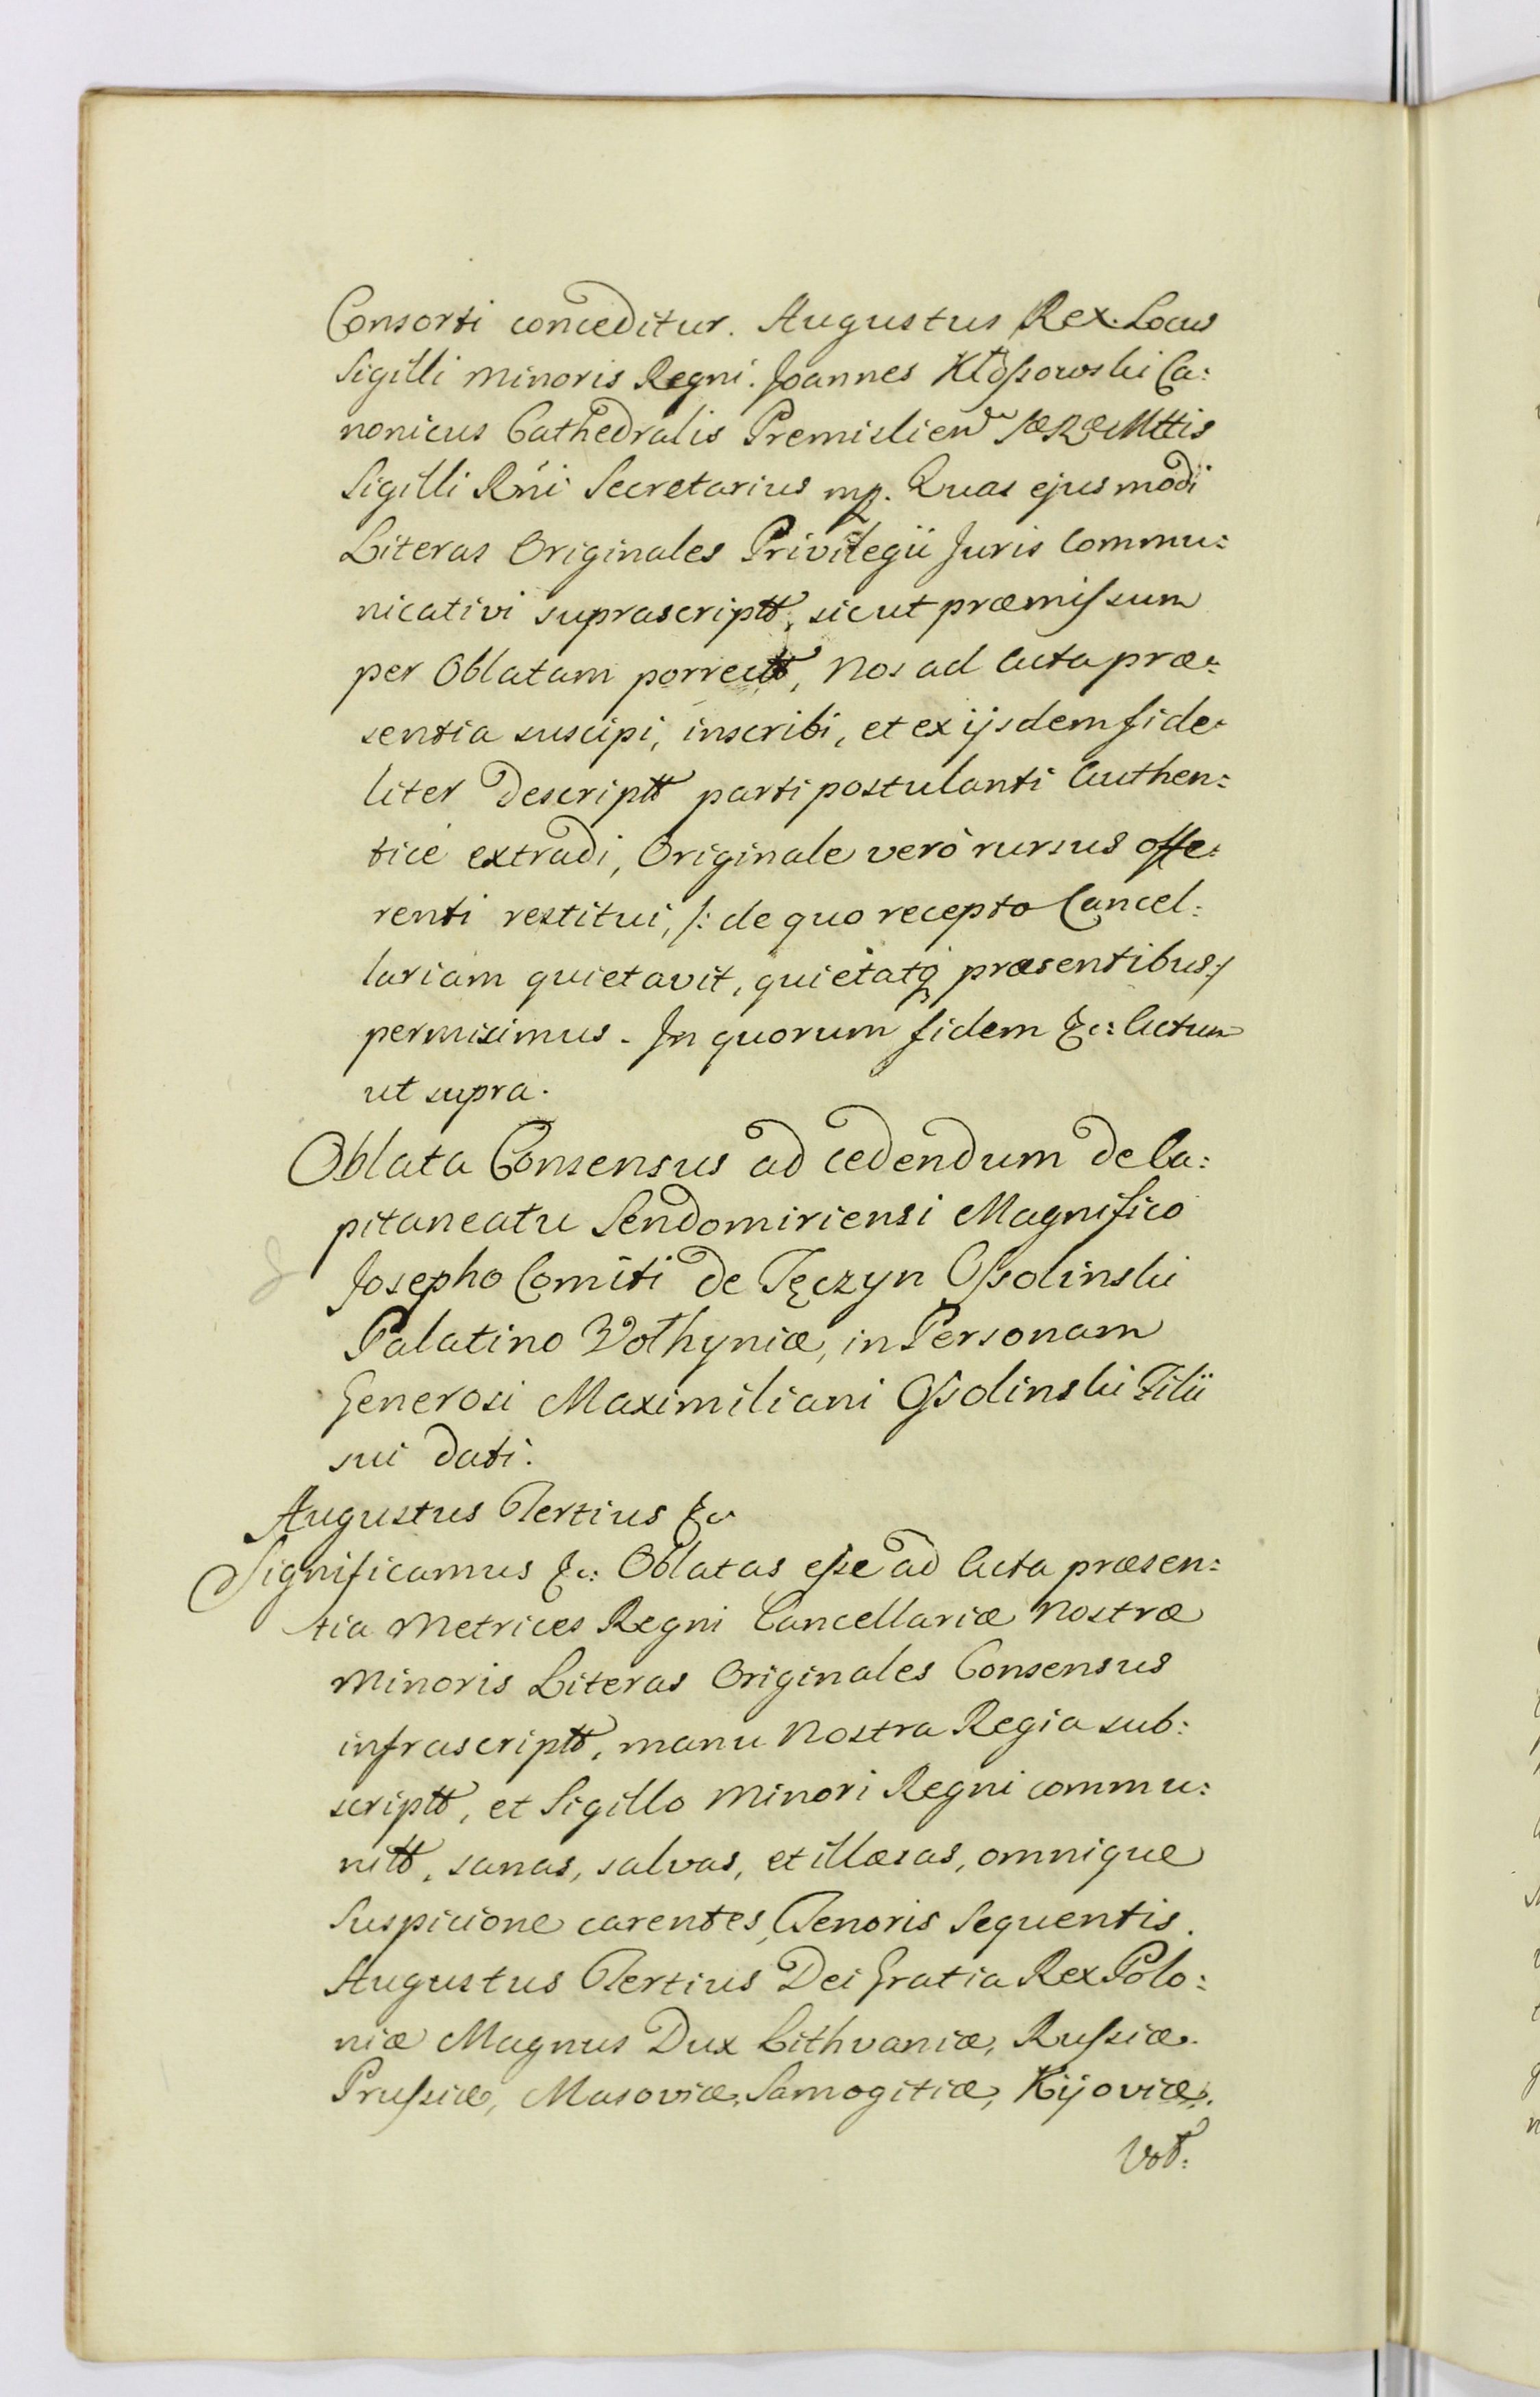 Consorti conceditur. Augustus Rex. Locus
Sigilli minoris Regni. Joannes Kłossowski Ca:
nonicus Cathedralis Premislien SæRæMttis
Sigilli Rńi Secretarius mp. Quas ejusmodi
Literas Originales Privilegii Juris Commu:
nicativi suprascriptt, sicut præmissum
per Oblatam porrectt, Nos ad Acta præ:
sentia suscipi, inscribi, et ex ijsdem fide:
liter descriptt parti postulanti Authen:
ticè extradi, Originale verò rursus offe:
renti restitui, /: de quo recepto Cancel:
lariam quietavit, quietatq præsentibus :/
permisimus. In quorum fidem &c: Actum
ut supra.
Oblata Consensus ad cedendum de Ca:
pitaneatu Sendomiriensi Magnifico
Josepho Comiti de Tęczyn Ossolinski
Palatino Volhyniæ, in Personam
Generosi Maximiliani Ossolinski Filii
sui dati.
Augustus Tertius &c
Significamus &c: Oblatas esse ad Acta præsen:
tia Metrices Regni Cancellariæ Nostræ
Minoris Literas Originales Consensus
infrascriptt, manu Nostra Regia sub:
scriptt, et Sigillo Minori Regni commu:
nitt, sanas, salvas, et illæsas, omnique
Suspicione carentes, Tenoris Sequentis.
Augustus Tertius Dei Gratia Rex Polo:
niæ Magnus Dux Lithvaniæ, Russiæ.
Prussiæ, Masoviæ, Samogitiæ, Kijoviæ,
Vol: